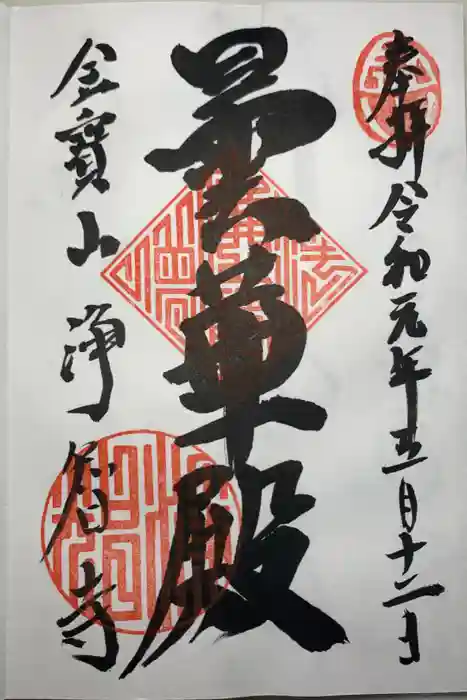 奉拝 令和元年五月十二日
曇華殿
金寳山 浄智寺